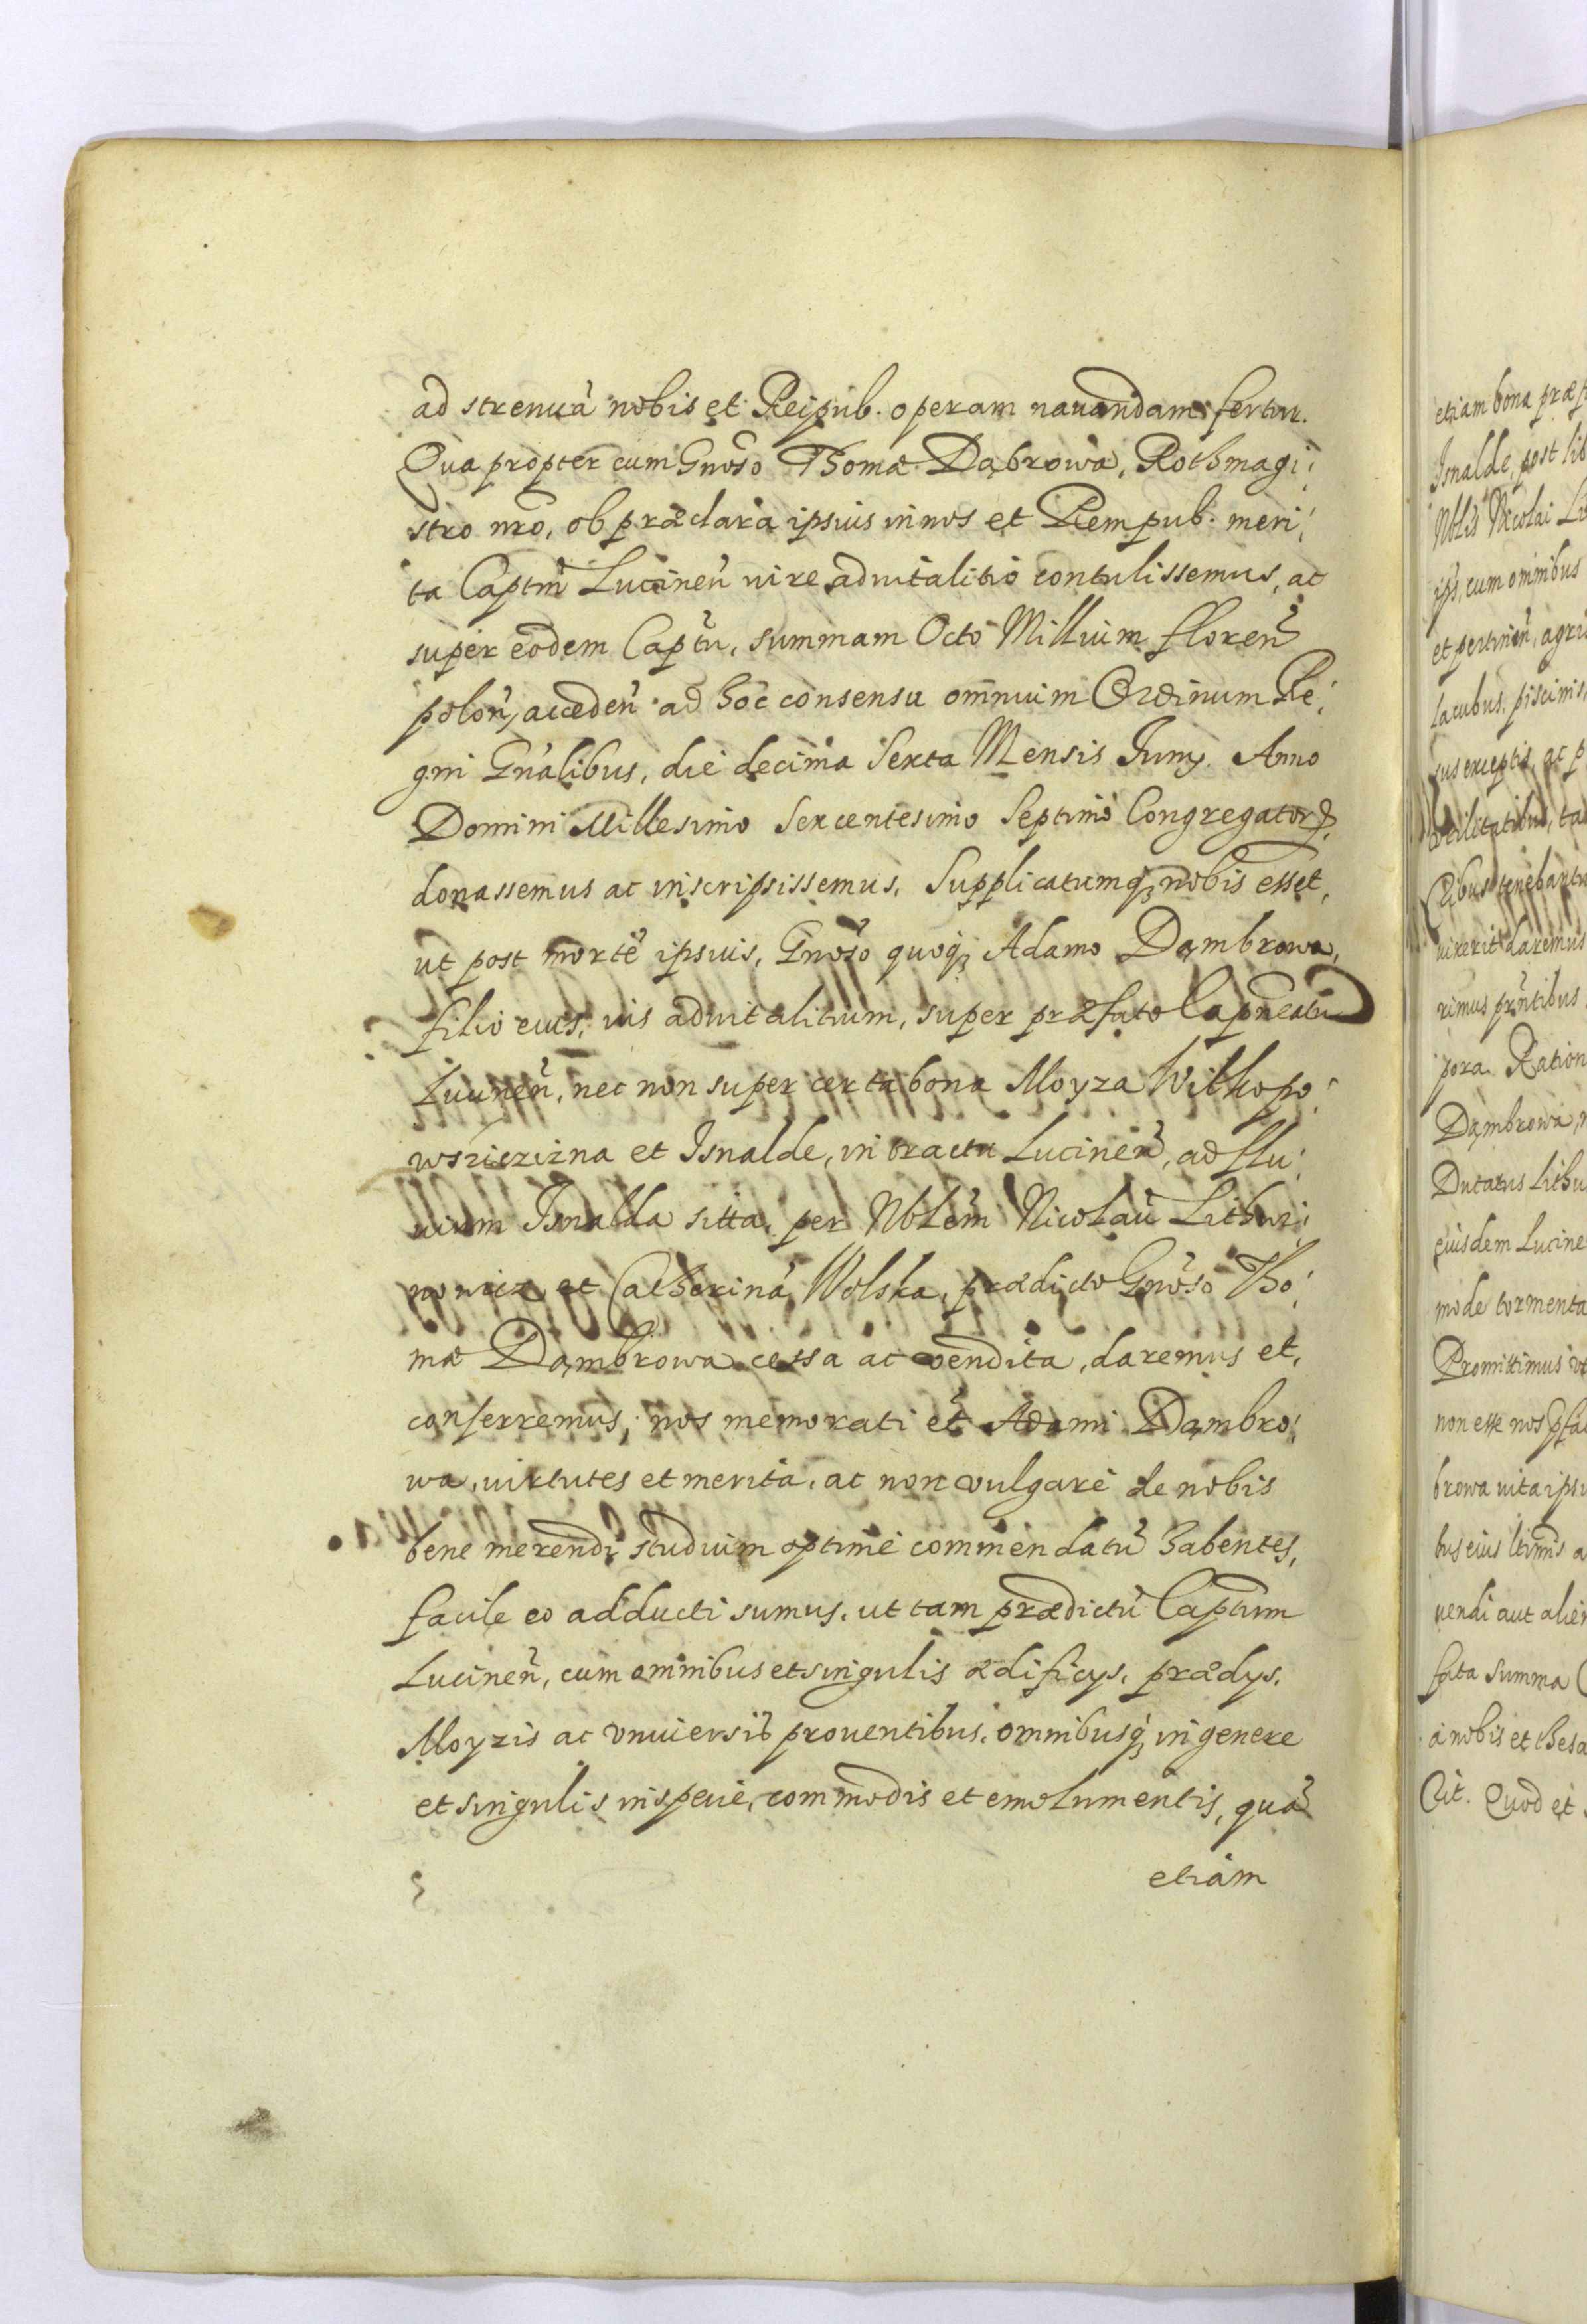 ad strenuã nobis et Reipub. operam nauandam fertur.
Qua propter cum Gnõso Thoma Dąbrowa, Rothmagi:
stro nrõ, ob præclara ipsius in nos et Rempub. meri:
ta Captm̃ Lucineñ iure aduitalitio contulissemus, ac
super eodem Captũ, summam Octo Millium floreñ
poloñ, accedeñ ad hoc consensu omnium Ordinum Re:
gni Gñalibus, die decima Sexta Mensis Iuny. Anno
Domini Millesimo Sexcentesimo Septimo Congregatorꝝ
donassemus ac inscripsissemus. Supplicatumqꝫ nobis esset,
ut post mortẽ ipsius, Gnõso quoqꝫ Adamo Dąmbrowa,
filio eius, ius aduitalitium, super præfato Capneatu
Lucineñ, nec non super certa bona Moyza Wilkopo:
wsziczizna et Isnalde, in tractu Lucineñ, ad flu:
uium Isnalda sitta, per Nblẽm Nicolaũ Lithwi:
nowicz et Catherinã Wolska, prædicto Gnõso Tho:
mæ Dąmbrowa cessa ac vendita, daremus et,
conferremus, nos memorati et̃ Adami Dąmbro:
wa, uirtutes et merita, ac non vulgare de nobis
bene merendi studium optime commendatũ habentes,
facile eo adducti sumus, ut tam prædictũ Captum
Lucineñ, cum omnibus et singulis ædificys, prædys,
Moyzis ac vniuersis prouentibus, omnibusqꝫ in genere
et singulis in specie, commodis et emolumentis, quã
etiam
etiam bona præf
Isnalde, post lib
Nblis Nicolai Li
ips, cum omnibus
et pertineñ, agri
lacubus, piscinis,
sus exceptis, ac p
vtilitatibus, ta
Qibus tenebantu
uixerit daremus
rimus pr̃ntibus
pora. Ration
Dąmbrowa,
Ducatus Lithu
eiusdem Lucine
mode tormenta
Promittimus vt
non esse nos pfa
browa uita ipsi
bus eius ltimis a
uendi aut alien
fata Summa
a nobis et thesa
Cit. Quod et